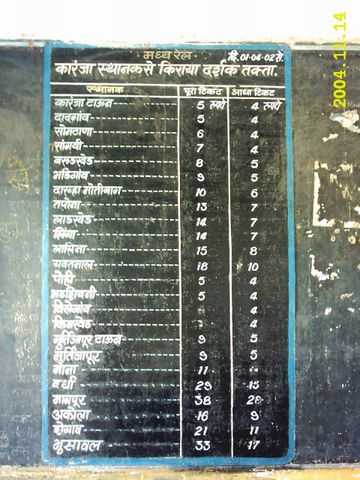 2004 11 14
मध्य रेल दि. 01-04-02 से
कारंजा स्थानकसे किराया दर्शक तक्ता.
स्थानक पूरा टिकट आधा टिकट
कारंजा टाऊन 5 रुपये 4 रुपये
दादगांव 5 4
सोमठाणा 6 4
सांगवी 7 4
बरुडखेड 8 5
भडेगांव 9 5
दारव्हा मोतीबाग 10 6
तपोना 13 7
लाडखेड 14 7
लिंगा 14 7
लासिना 15 8
यवतमाल 18 10
पोही 5 4
भडशिवनी 5 4
विलेगांव 4
किनखेड 4
मुर्तिजापूर टाऊन 9 5
मुर्तिजापूर 9 5
माना 11
वर्धा 29 15
नागपूर 38
अकोला 16 9
शेगांव 21 11
भुसावल 33 17